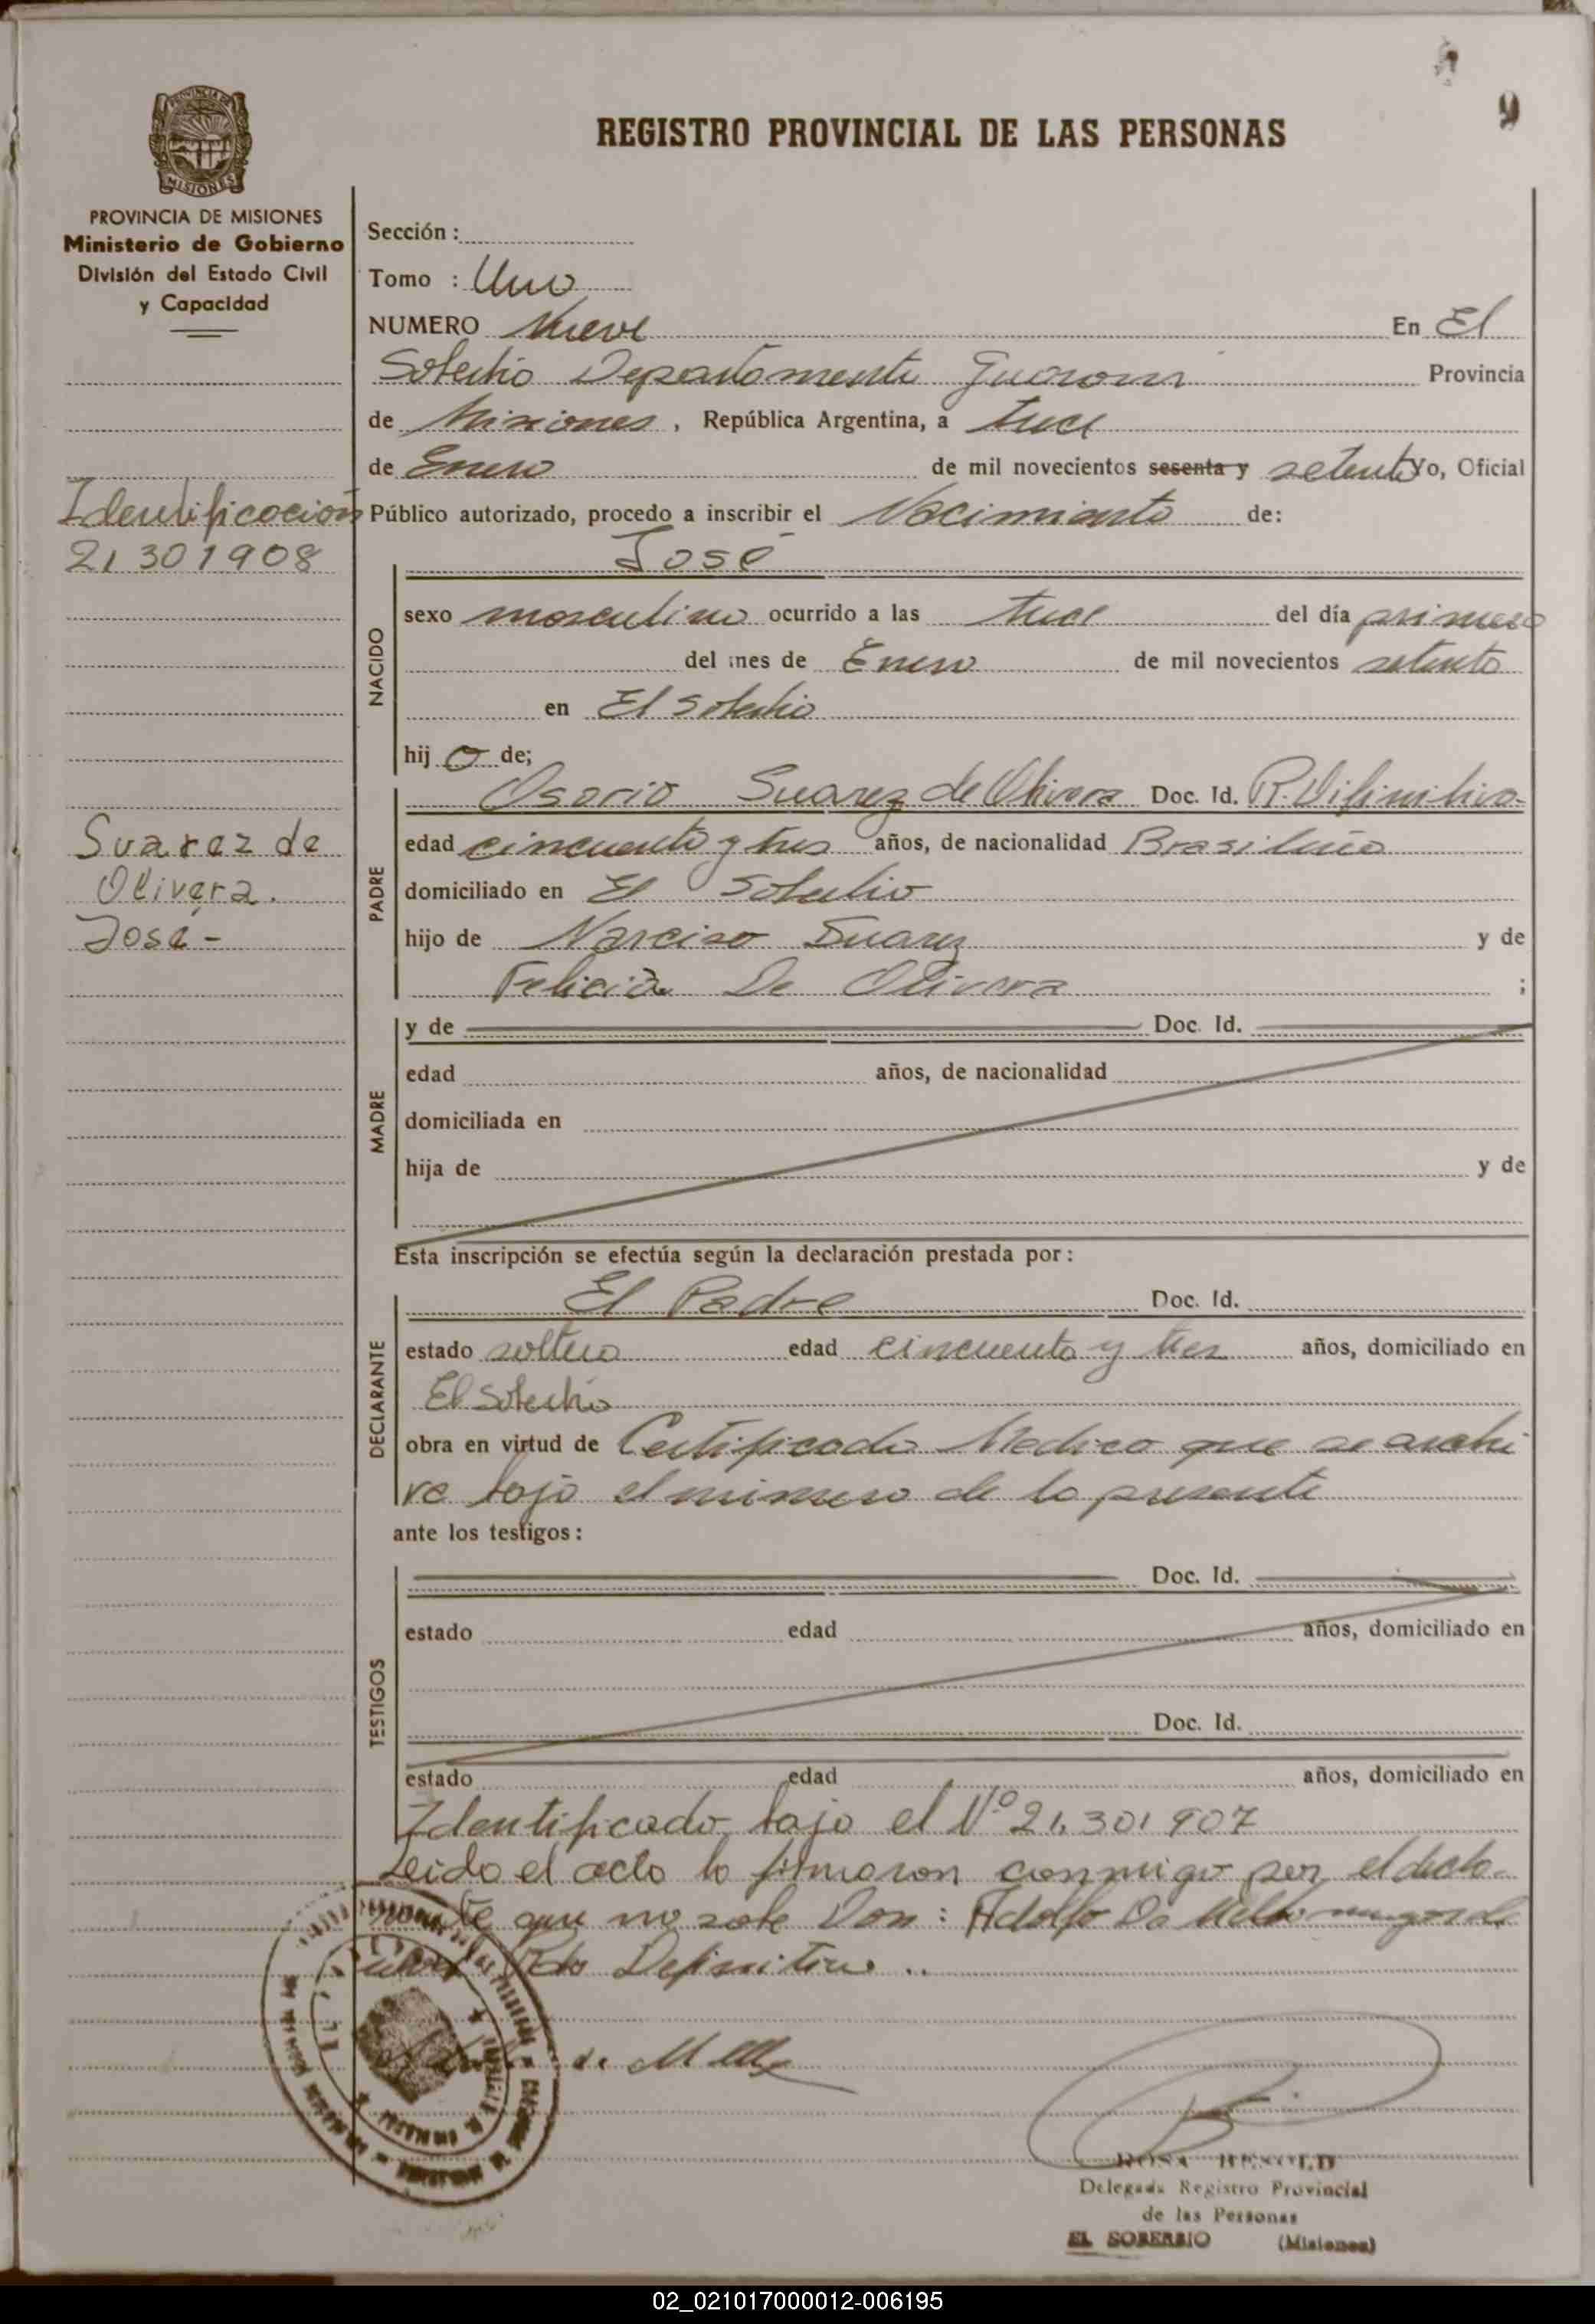 9
REGISTRO PROVINCIAL DE LAS PERSONAS
PROVINCIA DE MISIONES
Ministerio de Gobierno
División del Estado Civil
y Capacidad
Sección :
Tomo : Uno
NUMERO Nueve En El
Soberbio Departamento Guarani Provincia
de Misiones, República Argentina, a trece
de Enero de mil novecientos sesenta y setenta Yo, Oficial
Identificación
21301908
Público autorizado, procedo a inscribir el Nacimiento de:
José
NACIDO
sexo masculino ocurrido a las trece del día primero
del mes de Enero de mil novecientos setenta
en El Soberbio
hij o de;
Suarez de
Olivera.
José -
PADRE
Osorio Suarez de Olivera Doc. Id. R. Difinitivo-
edad cincuenta y tres años, de nacionalidad Brasileño
domiciliado en El Soberbio
hijo de Narciso Suarez y de
Felicia De Olivera ;
MADRE
y de Doc. Id.
edad años, de nacionalidad
domiciliada en
hija de y de
Esta inscripción se efectúa según la declaración prestada por :
DECLARANTE
El Padre Doc. Id.
estado soltero edad cincuenta y tres años, domiciliado en
El Soberbio
obra en virtud de Certificado Medico que se archi
va bajo el numero de la presente
ante los testigos :
TESTIGOS
Doc. Id.
estado edad años, domiciliado en
Doc. Id.
estado edad años, domiciliado en
Identificado bajo el Nº 21.301907
Leido el acta la firmaron conmigo por el decla-
rante que no sabe Don: Adolfo De Mello mayor de
edad Rdo Definitivo ..
de Mello
ROSA
Delegada Registro Provincial
de las Personas
EL SOBERBIO (Misiones)
02_021017000012-006195